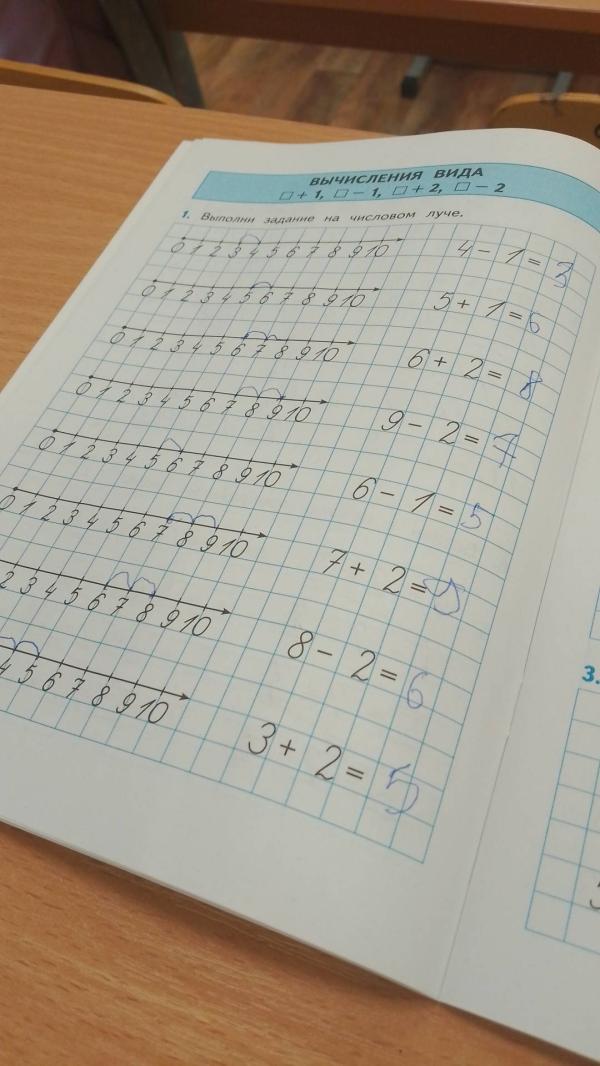 ВЫЧИСЛЕНИЯ ВИДА
□ + 1, □ − 1, □ + 2, □ − 2
1. Выполни задание на числовом луче.
0 1 2 3 4 5 6 7 8 9 10 4 − 1 = 3
0 1 2 3 4 5 6 7 8 9 10 5 + 1 = 6
0 1 2 3 4 5 6 7 8 9 10 6 + 2 = 8
0 1 2 3 4 5 6 7 8 9 10 9 − 2 = 7
0 1 2 3 4 5 6 7 8 9 10 6 − 1 = 5
0 1 2 3 4 5 6 7 8 9 10 7 + 2 = 9
2 3 4 5 6 7 8 9 10 8 − 2 = 6
4 5 6 7 8 9 10 3 + 2 = 5
3.